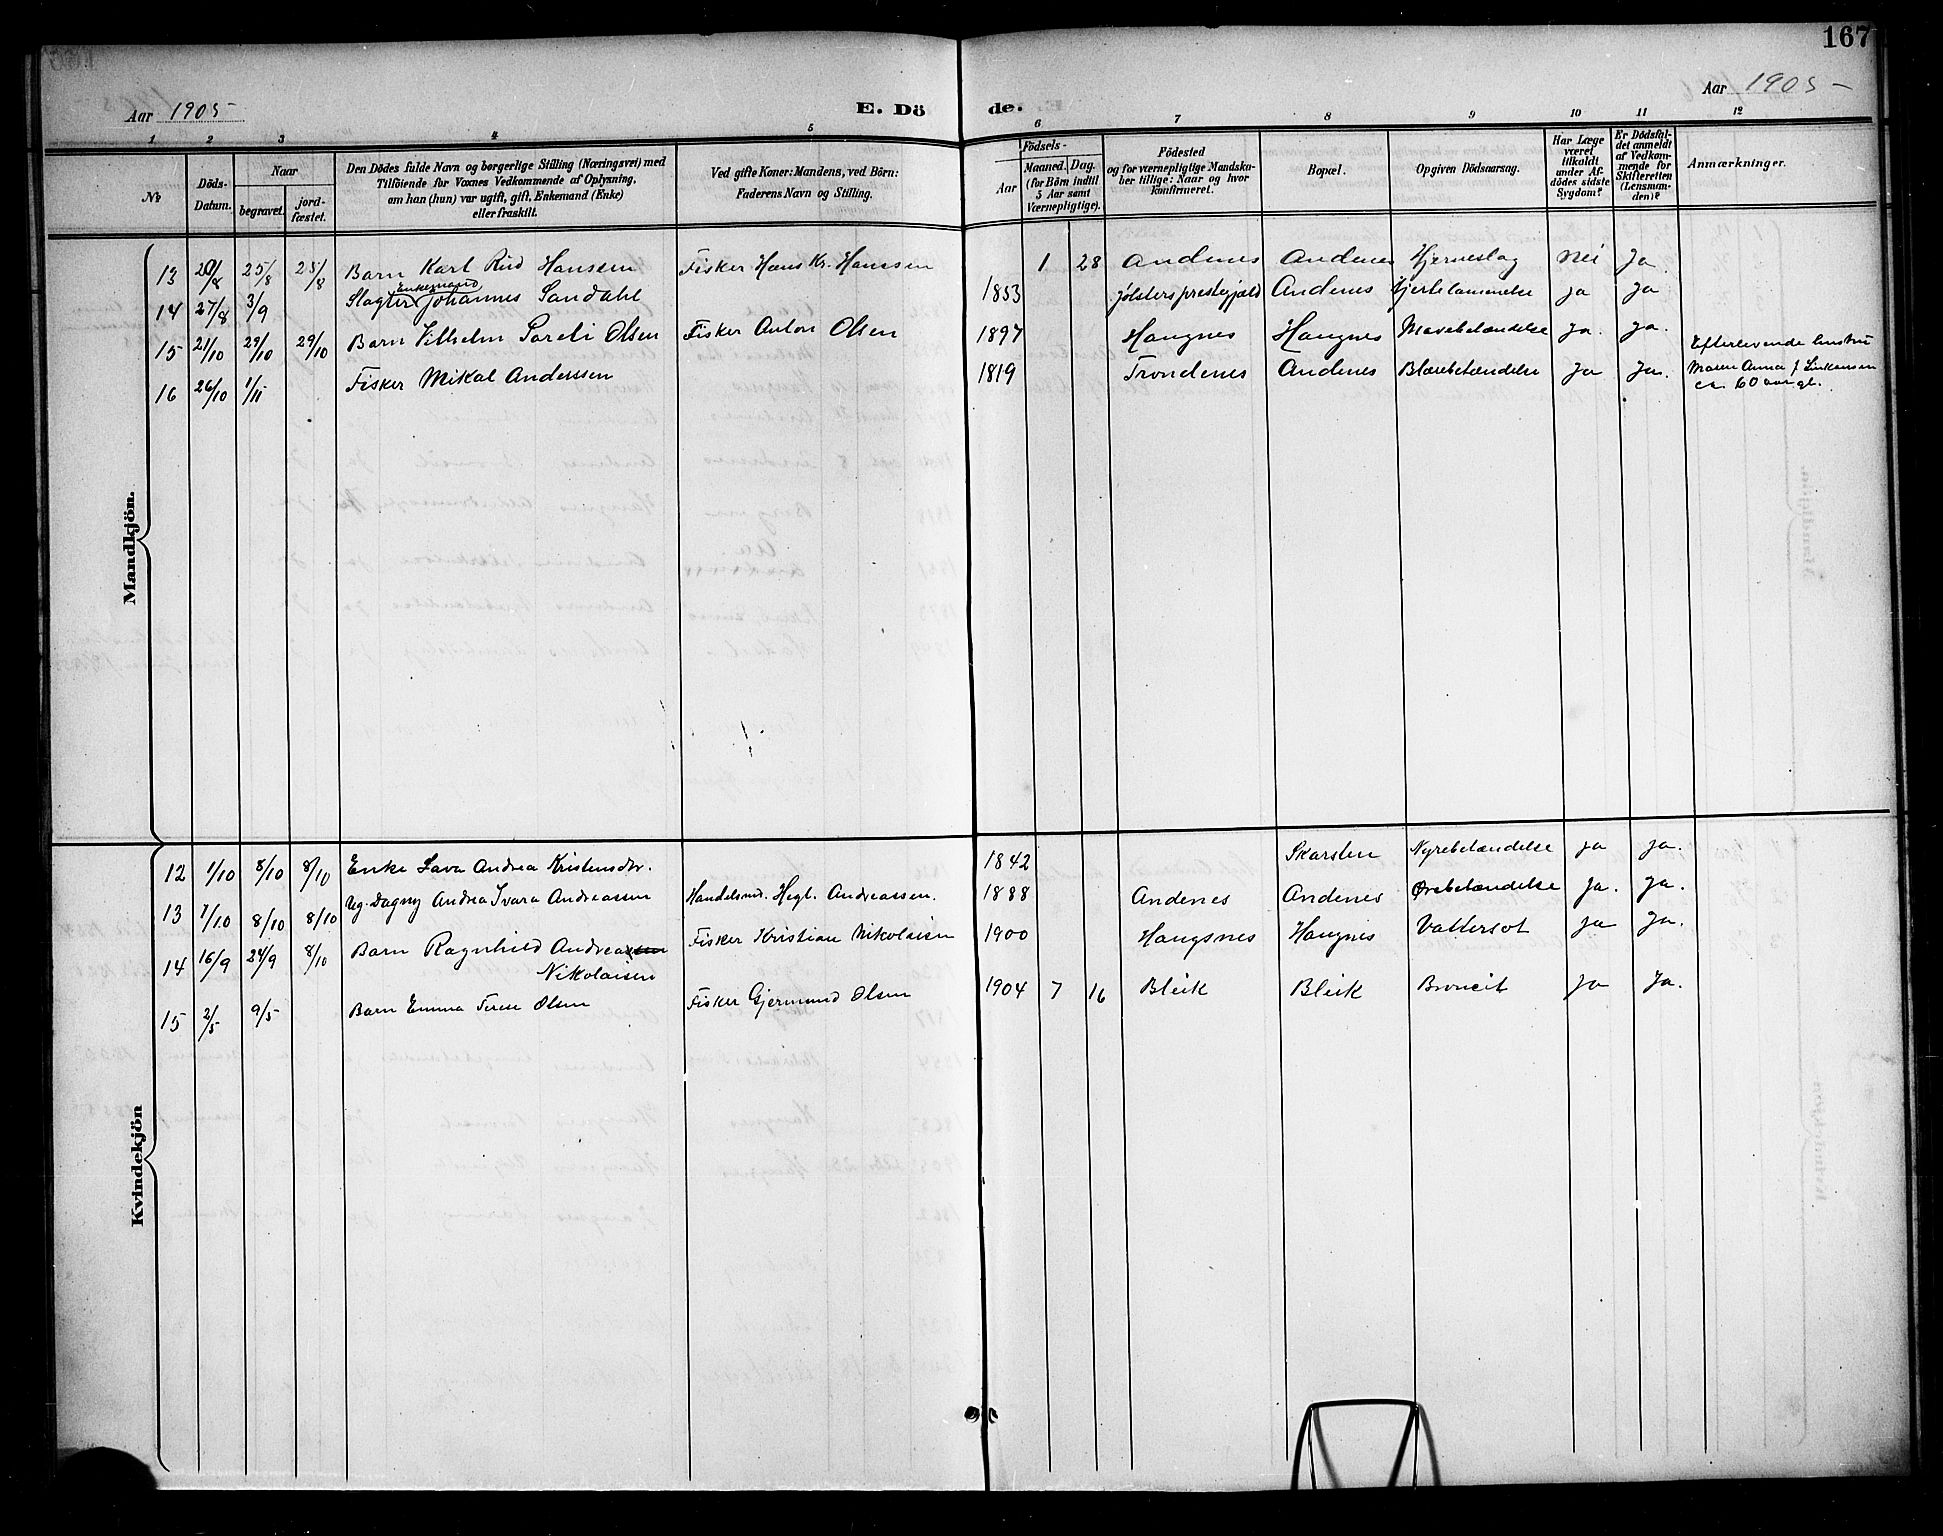 167
Aar 1905
E. Döde.
Aar 1905 –
1 2 3 4 5 6 7 8 9 10 11 12
No.
Döds-Datum.
Naar
begravet.
jord-fæstet.
Den Dödes fulde Navn og borgerlige Stilling (Næringsvei) med
Tilföiende for Voxnes Vedkommende af Oplysning,
om han (hun) var ugift, gift, Enkemand (Enke)
eller fraskilt.
Ved gifte Koner: Mandens, ved Börn:
Faderens Navn og Stilling.
Födsels-
Aar
Maaned. Dag.
(for Börn indtil
5 Aar samt
Værnepligtige).
Födested
og for værnepligtige Mandska-
ber tillige: Naar og hvor
konfirmeret.
Bopæl.
Opgiven Dödsaarsag.
Har Læge
været
tilkaldt
under Af-
dödes sidste
Sygdom?
Er Dödsfal-
det anmeldt
af Vedkom-
mende for
Skifteretten
(Lensman-
den)?
Anmærkninger.
Mandkjön.
13 20/8 25/8 25/8 Barn Karl Rud Hanssen Fisker Hans Kr. Hanssen 1 28 Andenes Andenes Hjerneslag Nei Ja
Enkemand
14 27/8 3/9 Slagter Johannes Sandahl 1853 Jølsters prestegjæld Andenes Hjertelammelse ja ja
15 21/10 29/10 29/10 Barn Vilhelm Soreli Olsen Fisker Anton Olsen 1897 Haugnes Haugnes Mavebetændelse Ja. Ja.
16 26/10 1/11 Fisker Mikal Anderssen 1819 Trondenes Andenes Blærebetændelse Ja Ja.
Efterlevende hustru
Maren Anna f.
ca. 60 aar gl.
Kvindekjön
12 1/10 8/10 8/10 Enke Lava Andrea Kristensdtr. 1842 Skarsten Nyrebetændelse ja ja.
13 1/10 8/10 8/10 Ug. Dagny Andrea Ivara Andreassen Handelsmd. Hegl. Andreassen. 1888 Andenes Andenes Ørebetændelse Ja. Ja.
14 16/9 24/9 8/10 Barn Ragnhild Andreassen Fisker Kristian Nikolaisen 1900 Haugsnes Haugnes Vattersot Ja Ja.
Nikolaisen
15 2/5 9/5 Barn Emma Terese Olsen Fisker Gjermund Olsen 1904 7 16 Bleik Bleik Broncit Ja Ja.